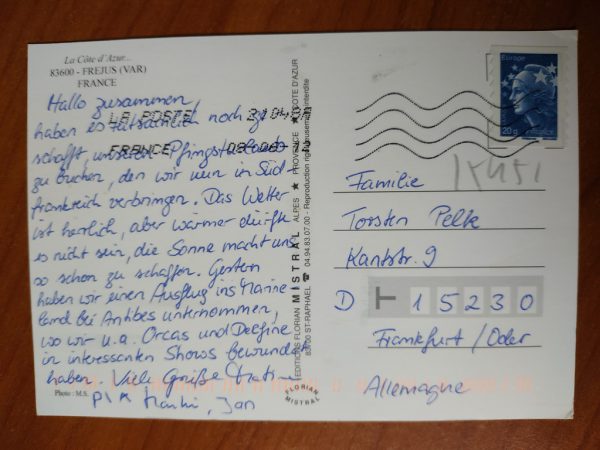 La Côte d'Azur...
83600 - FREJUS (VAR)
FRANCE
Hallo zusammen,
haben es tatsächlich noch ge-
schafft, unseren Pfingsturlaub
zu buchen, den wir nun in Süd-
frankreich verbringen. Das Wetter
ist herrlich, aber wärmer dürfte
es nicht sein, die Sonne macht uns
so schon zu schaffen. Gestern
haben wir einen Ausflug ins Marine-
land bei Antibes unternommen,
wo wir u. a. Orcas und Delfine
in interessanten Shows bewundert
haben. Viele Grüße
Jan
Photo : M.S.
LA POSTE
FRANCE
EDITIONS FLORIAN MISTRAL ALPES ★ PROVENCE ★ COTE D'AZUR
83700 ST-RAPHAEL ☎ 04.94.83.07.00 - Reproduction rigoureusement interdite
FLORIAN
MISTRAL
Europe
20g
15451
Familie
Torsten Pelke
Kantstr. 9
D T 15230
Frankfurt/Oder
Allemagne